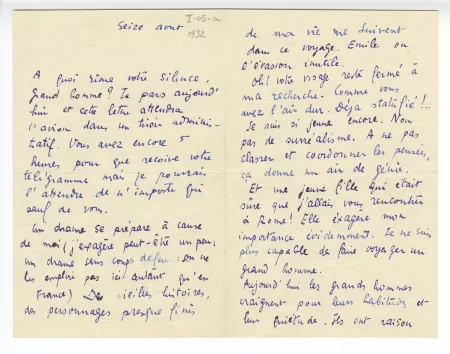 Seize aout
I-05-a
1932
A quoi rime votre silence,
grand homme? Je pars aujourd'
hui et cette lettre attendra
l'avion dans un tiroir adminis-
tratif. Vous avez encore 5
heures pour que je reçoive votre
télégramme mais je pourrais
l'attendre de n'importe qui
sauf de vous.
Un drame se prépare à cause
de moi (j'exagère peut-être un peu:
un drame sens coups de feu: on ne
les emploie pas ici autant qu'en
France) De vieilles histoires,
des personnages presque finis
de ma vie me suivent
dans ce voyage. Emile ou
l'évasion inutile.
Oh! votre visage resté fermé à
ma recherche. Comme vous
avez l'air dur. Déjà statifié!..
Je suis si jeune encore. Non
pas de surréalisme. A ne pas
classer et coordonner les pensées,
ça donne un air de génie.
Et une jeune fille qui était
sûre que j'allais vous rencontrer
à Rome! Elle exagère mon
importance évidemment. Je ne suis
plus capable de faire voyager un
grand homme.
Aujourd'hui les grands hommes
craignent pour leurs habitudes et
leur quiétude. Ils ont raison